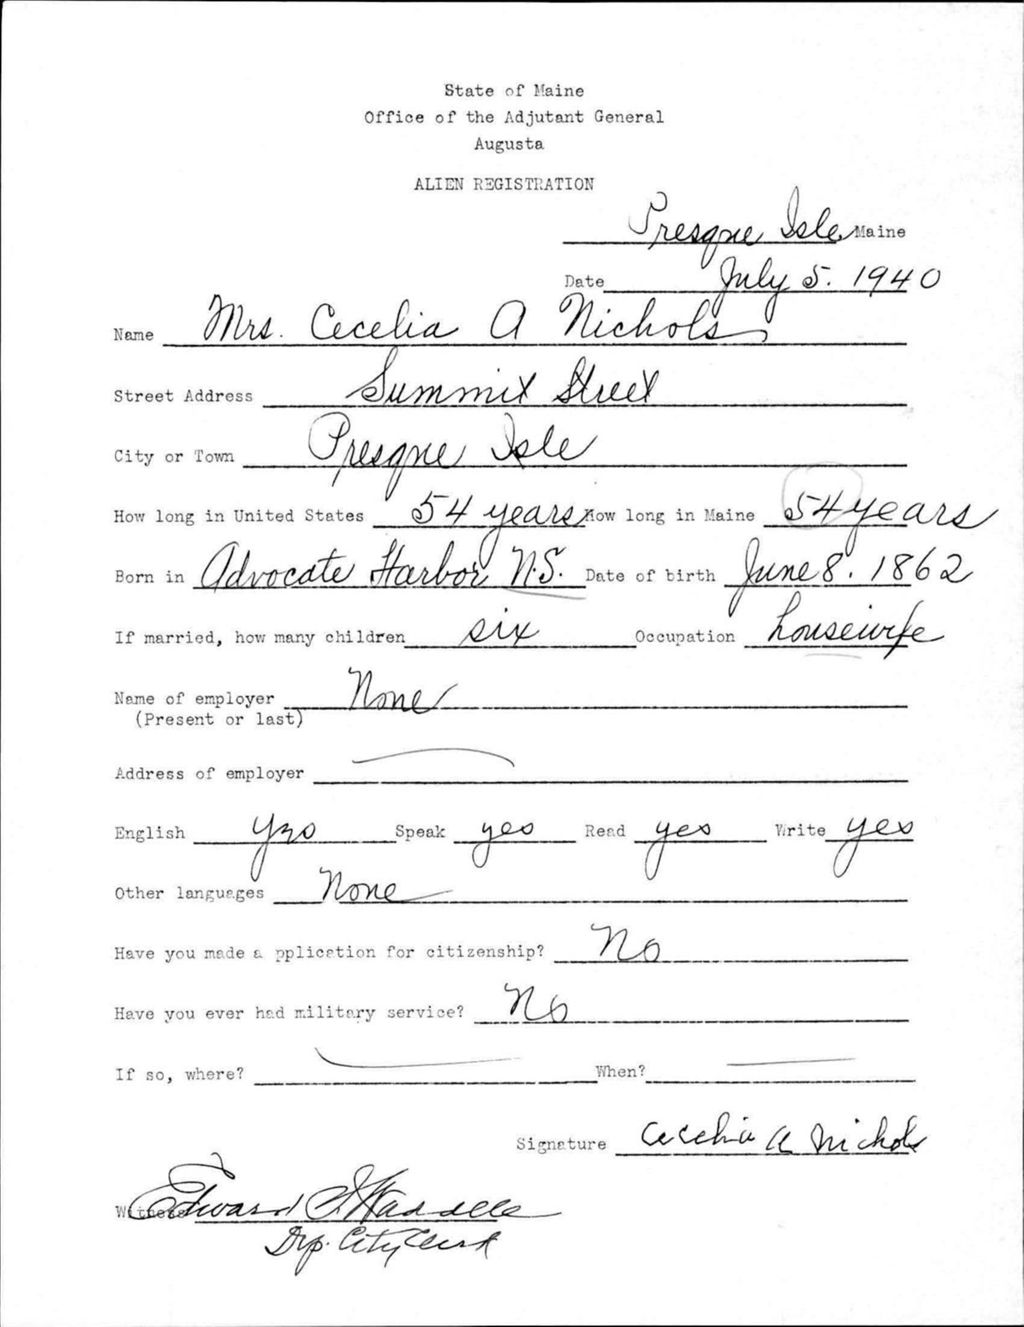 State of Maine
Office of the Adjutant General
Augusta
ALIEN REGISTRATION
Presque Isle Maine
Date July 5. 1940
Name Mrs. Cecelia A Nichols
Street Address Summit Street
City or Town Presque Isle
How long in United States 54 years How long in Maine 54 years
Born in Advocate Harbor N.S. Date of birth June 8. 1862
If married, how many children six Occupation housewife
Name of employer None
(Present or last)
Address of employer
English yes Speak yes Read yes Write yes
Other languages None
Have you made a pplication for citizenship? No
Have you ever had military service? No
If so, where? When?
Signature Cecelia A Nichols
Witness Edward
Dep. City Clerk